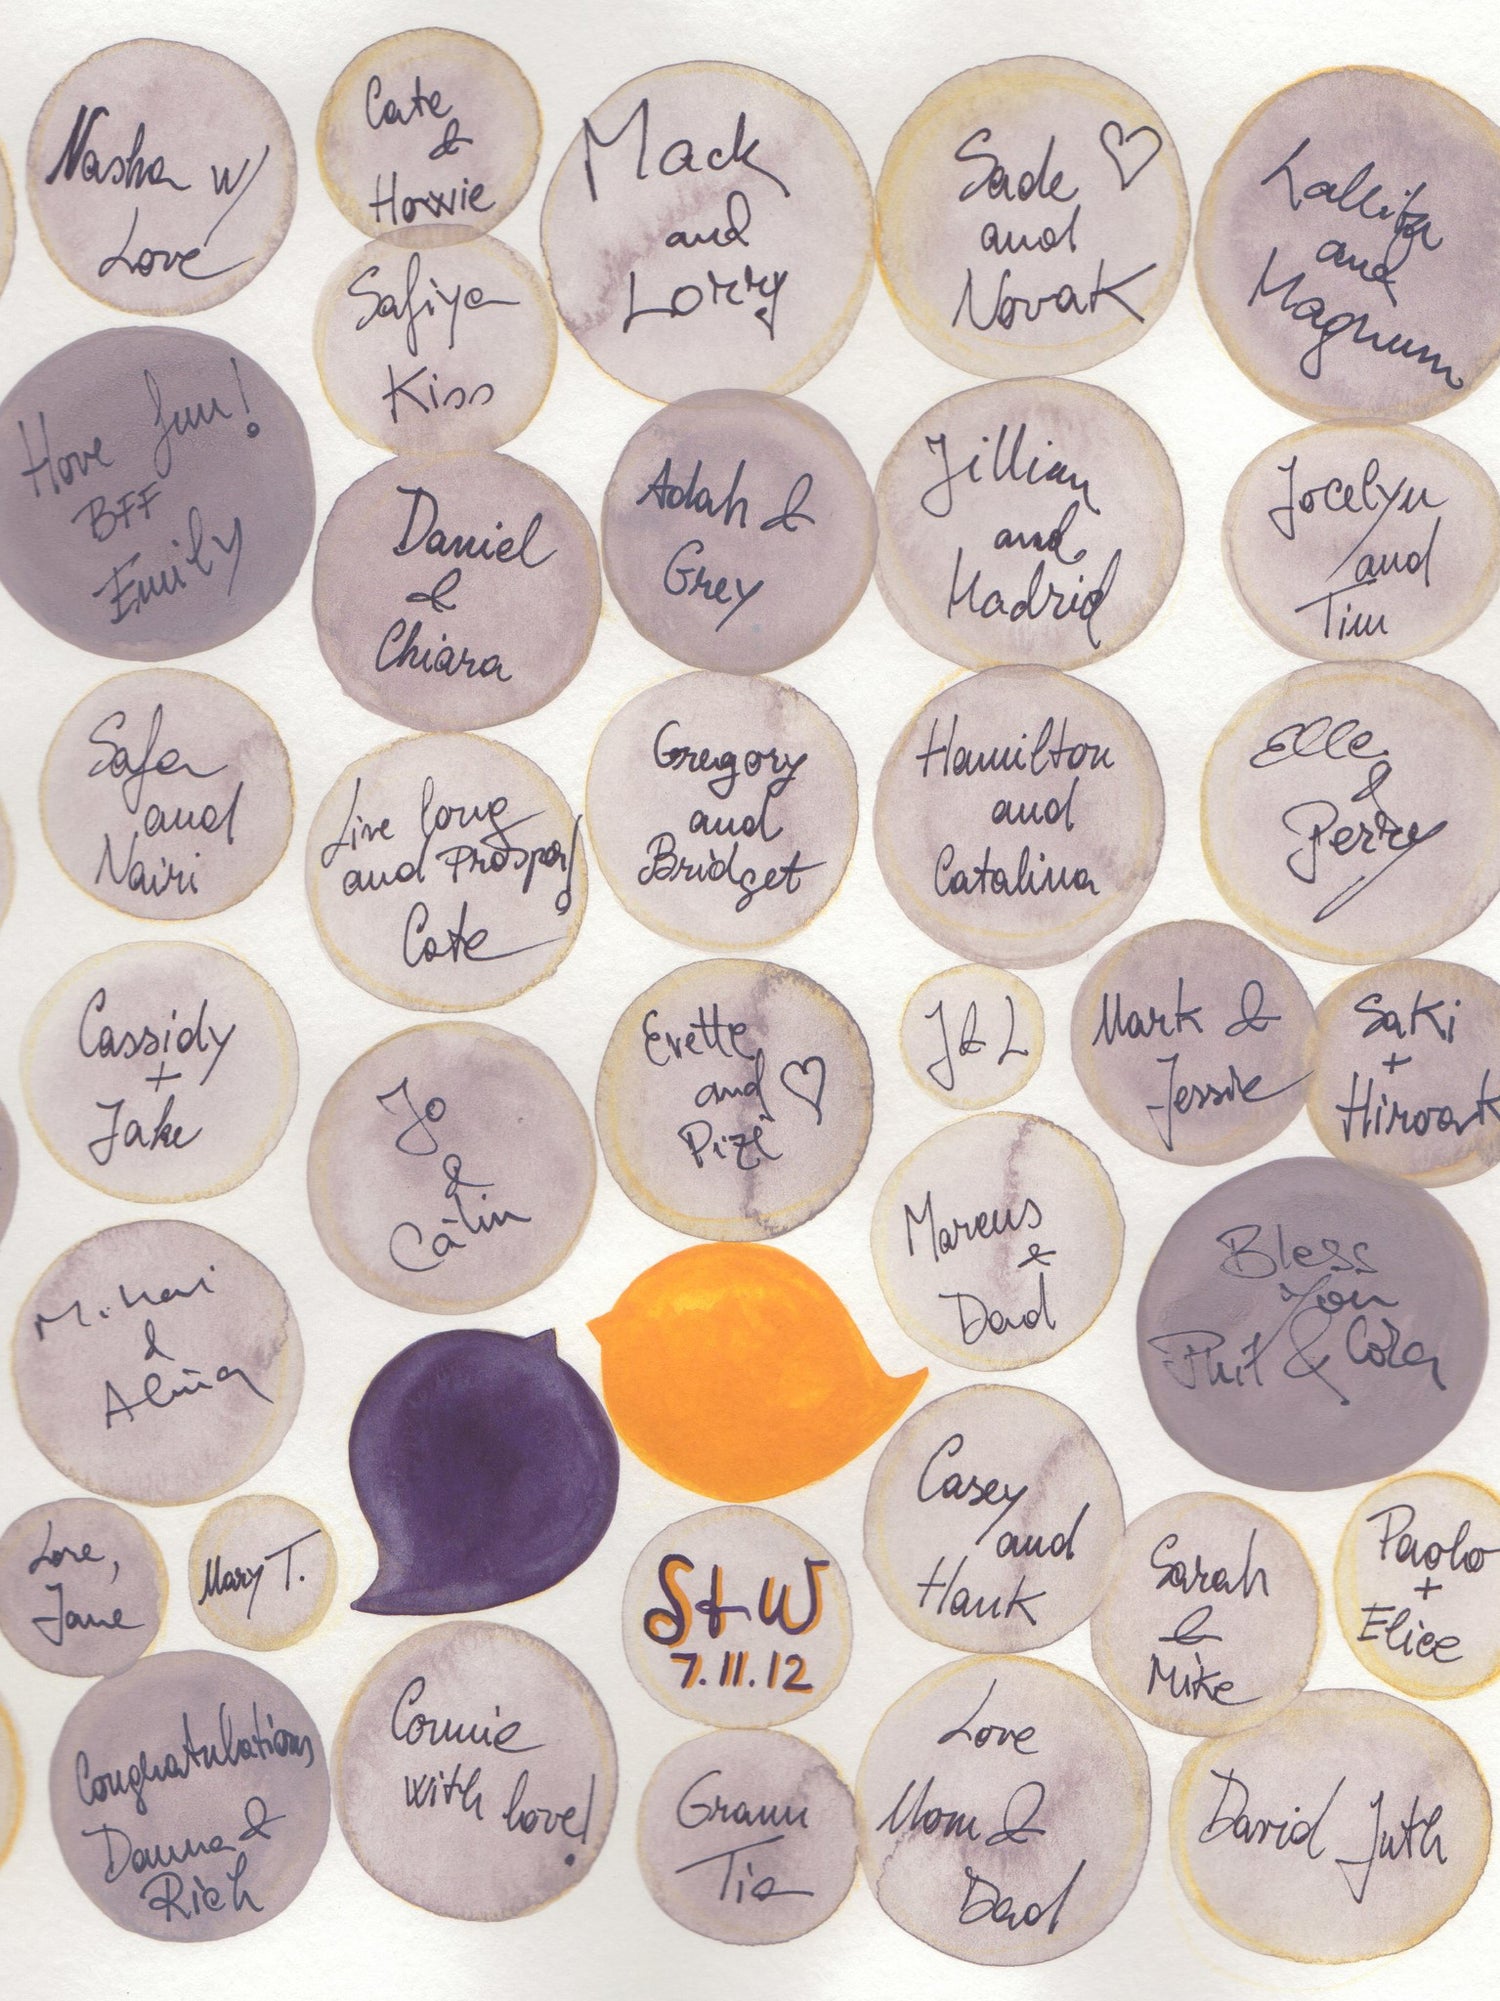 Nasha w/
Love
Cate
&
Howie
Mack
and
Lorry
Sade
and
Novak
Lallita
and
Magnum
Safiya
Kiss
Have fun!
BFF
Emily
Daniel
&
Chiara
Adah &
Grey
Jillian
and
Madrid
Jocelyn
and
Tim
Safa
and
Nairi
Live long
and Prosper!
Cate
Gregory
and
Bridget
Hamilton
and
Catalina
Elle
&
Perry
Cassidy
+
Jake
Jo
&
Călin
Evette
and
Pizi
J & L
Mark &
Jessie
Saki
+
Marcus
&
Dad
Bless
You
Phil & Cora
Mihai
&
Alina
Casey
and
Hank
Sarah
&
Mike
Paolo
+
Elice
Love,
Jane
Mary T.
S+W
7.11.12
Congratulations
Danna &
Rich
Connie
with love!
Grann
Tia
Love
Mom &
Dad
David Juth